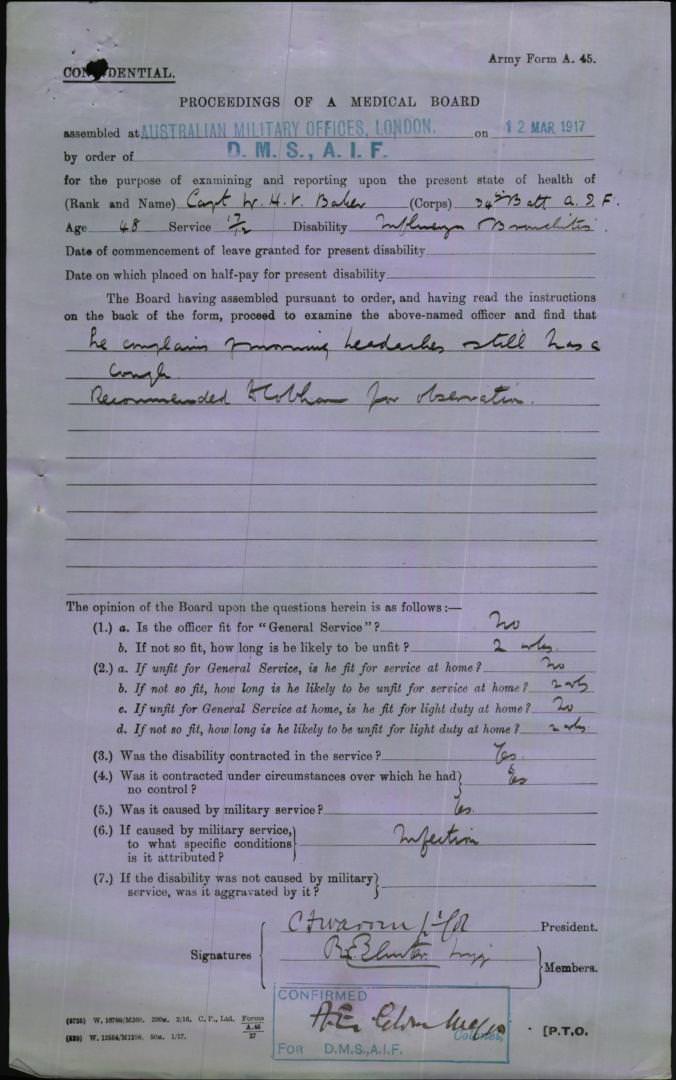 Army Form A. 45.
CONFIDENTIAL.
PROCEEDINGS OF A MEDICAL BOARD
assembled at AUSTRALIAN MILITARY OFFICES, LONDON. on 12 MAR 1917
by order of D. M. S., A. I. F.
for the purpose of examining and reporting upon the present state of health of
(Rank and Name) Capt W. H. V. Baker (Corps) 34th Batt A. I. F.
Age 48 Service Disability Influenza Bronchitis.
Date of commencement of leave granted for present disability
Date on which placed on half-pay for present disability
The Board having assembled pursuant to order, and having read the instructions
on the back of the form, proceed to examine the above-named officer and find that
he complains of morning headaches still has a
cough.
Recommended Cobham for observation.
The opinion of the Board upon the questions herein is as follows :—
(1.) a. Is the officer fit for "General Service"? No
b. If not so fit, how long is he likely to be unfit ? 2 wks.
(2.) a. If unfit for General Service, is he fit for service at home ? No
b. If not so fit, how long is he likely to be unfit for service at home ? 2 wks
c. If unfit for General Service at home, is he fit for light duty at home ? No
d. If not so fit, how long is he likely to be unfit for light duty at home ? 2 wks
(3.) Was the disability contracted in the service ? Yes.
(4.) Was it contracted under circumstances over which he had
no control ? Yes
(5.) Was it caused by military service ? Yes.
(6.) If caused by military service,
to what specific conditions
is it attributed ? Infection
(7.) If the disability was not caused by military
service, was it aggravated by it ?
President.
Signatures
Members.
CONFIRMED
Colonel,
FOR D.M.S., A.I.F.
[P.T.O.
(3735) W. 16769/M360. 200m. 2/16. C. P., Ltd. Forms A.45 27
W. 12554/M1206. 50m. 1/17.